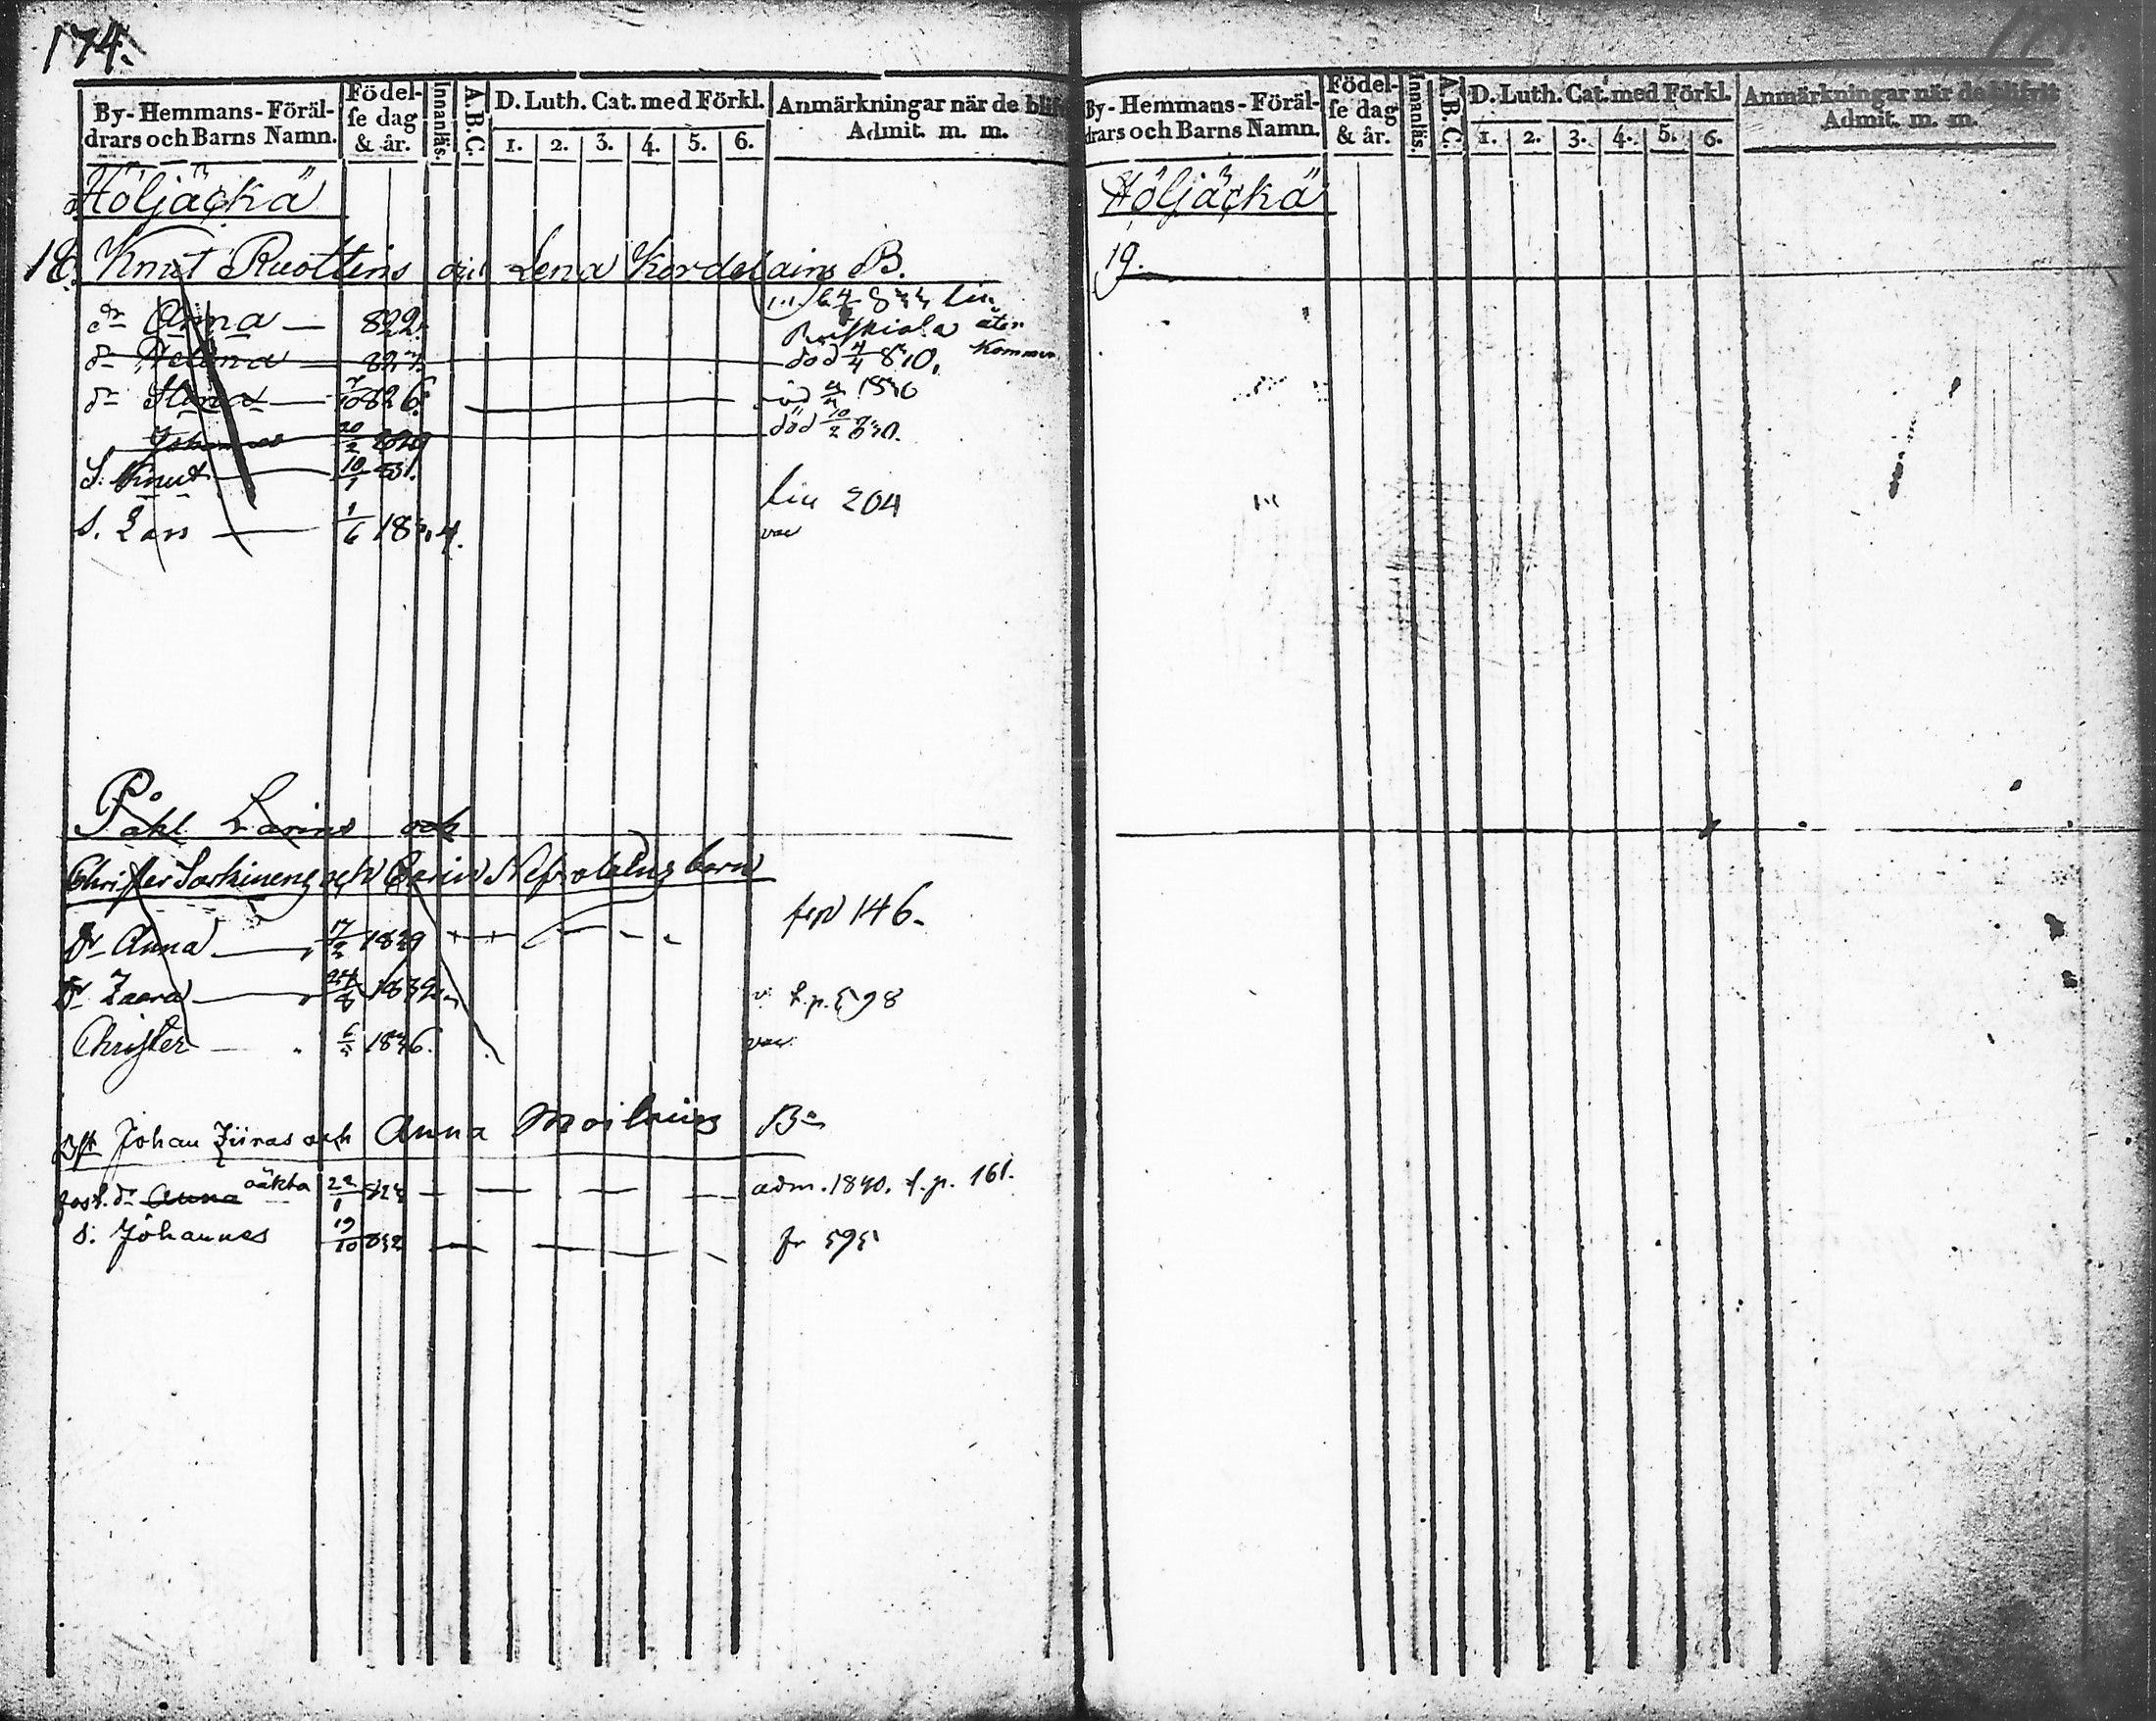 174.
By-Hemmans-Föräl-
drars och Barns Namn.
Födel-
se dag
& år.
Innanläs.
A.B.C.
D. Luth. Cat. med Förkl.
1. 2. 3. 4. 5. 6.
Anmärkningar när de blif
Admit. m. m.
Höljäckä
18. Knut Ruottins och Lena Kordelains B.
dr Anna — 822.
åter
dr Helena död
Kommer
dr Stina — 826.
Johannes död 10/2
S. Knut — 10/1 831.
S. Lars — 1/6 183 4.
lin 204
Påhl Larins och
Christer Sarkinens och Carin barn
fr p 146.
dr Anna — 17/2 1829
dr Zaara — 24/8 1832
f.p. 598
Christer — 1836.
Johan Ziiras och Anna Moilains Bn
fost. dr Anna oäkta 22/1
adm. 1840. f.p. 161.
S. Johannes 19/10 832
fr 595
By-Hemmans-Föräl-
drars och Barns Namn.
Födel-
se dag
& år.
Innanläs.
A.B.C.
D. Luth. Cat. med Förkl.
1. 2. 3. 4. 5. 6.
Anmärkningar när de blifvit
Admit. m. m.
Höljäckä
19.